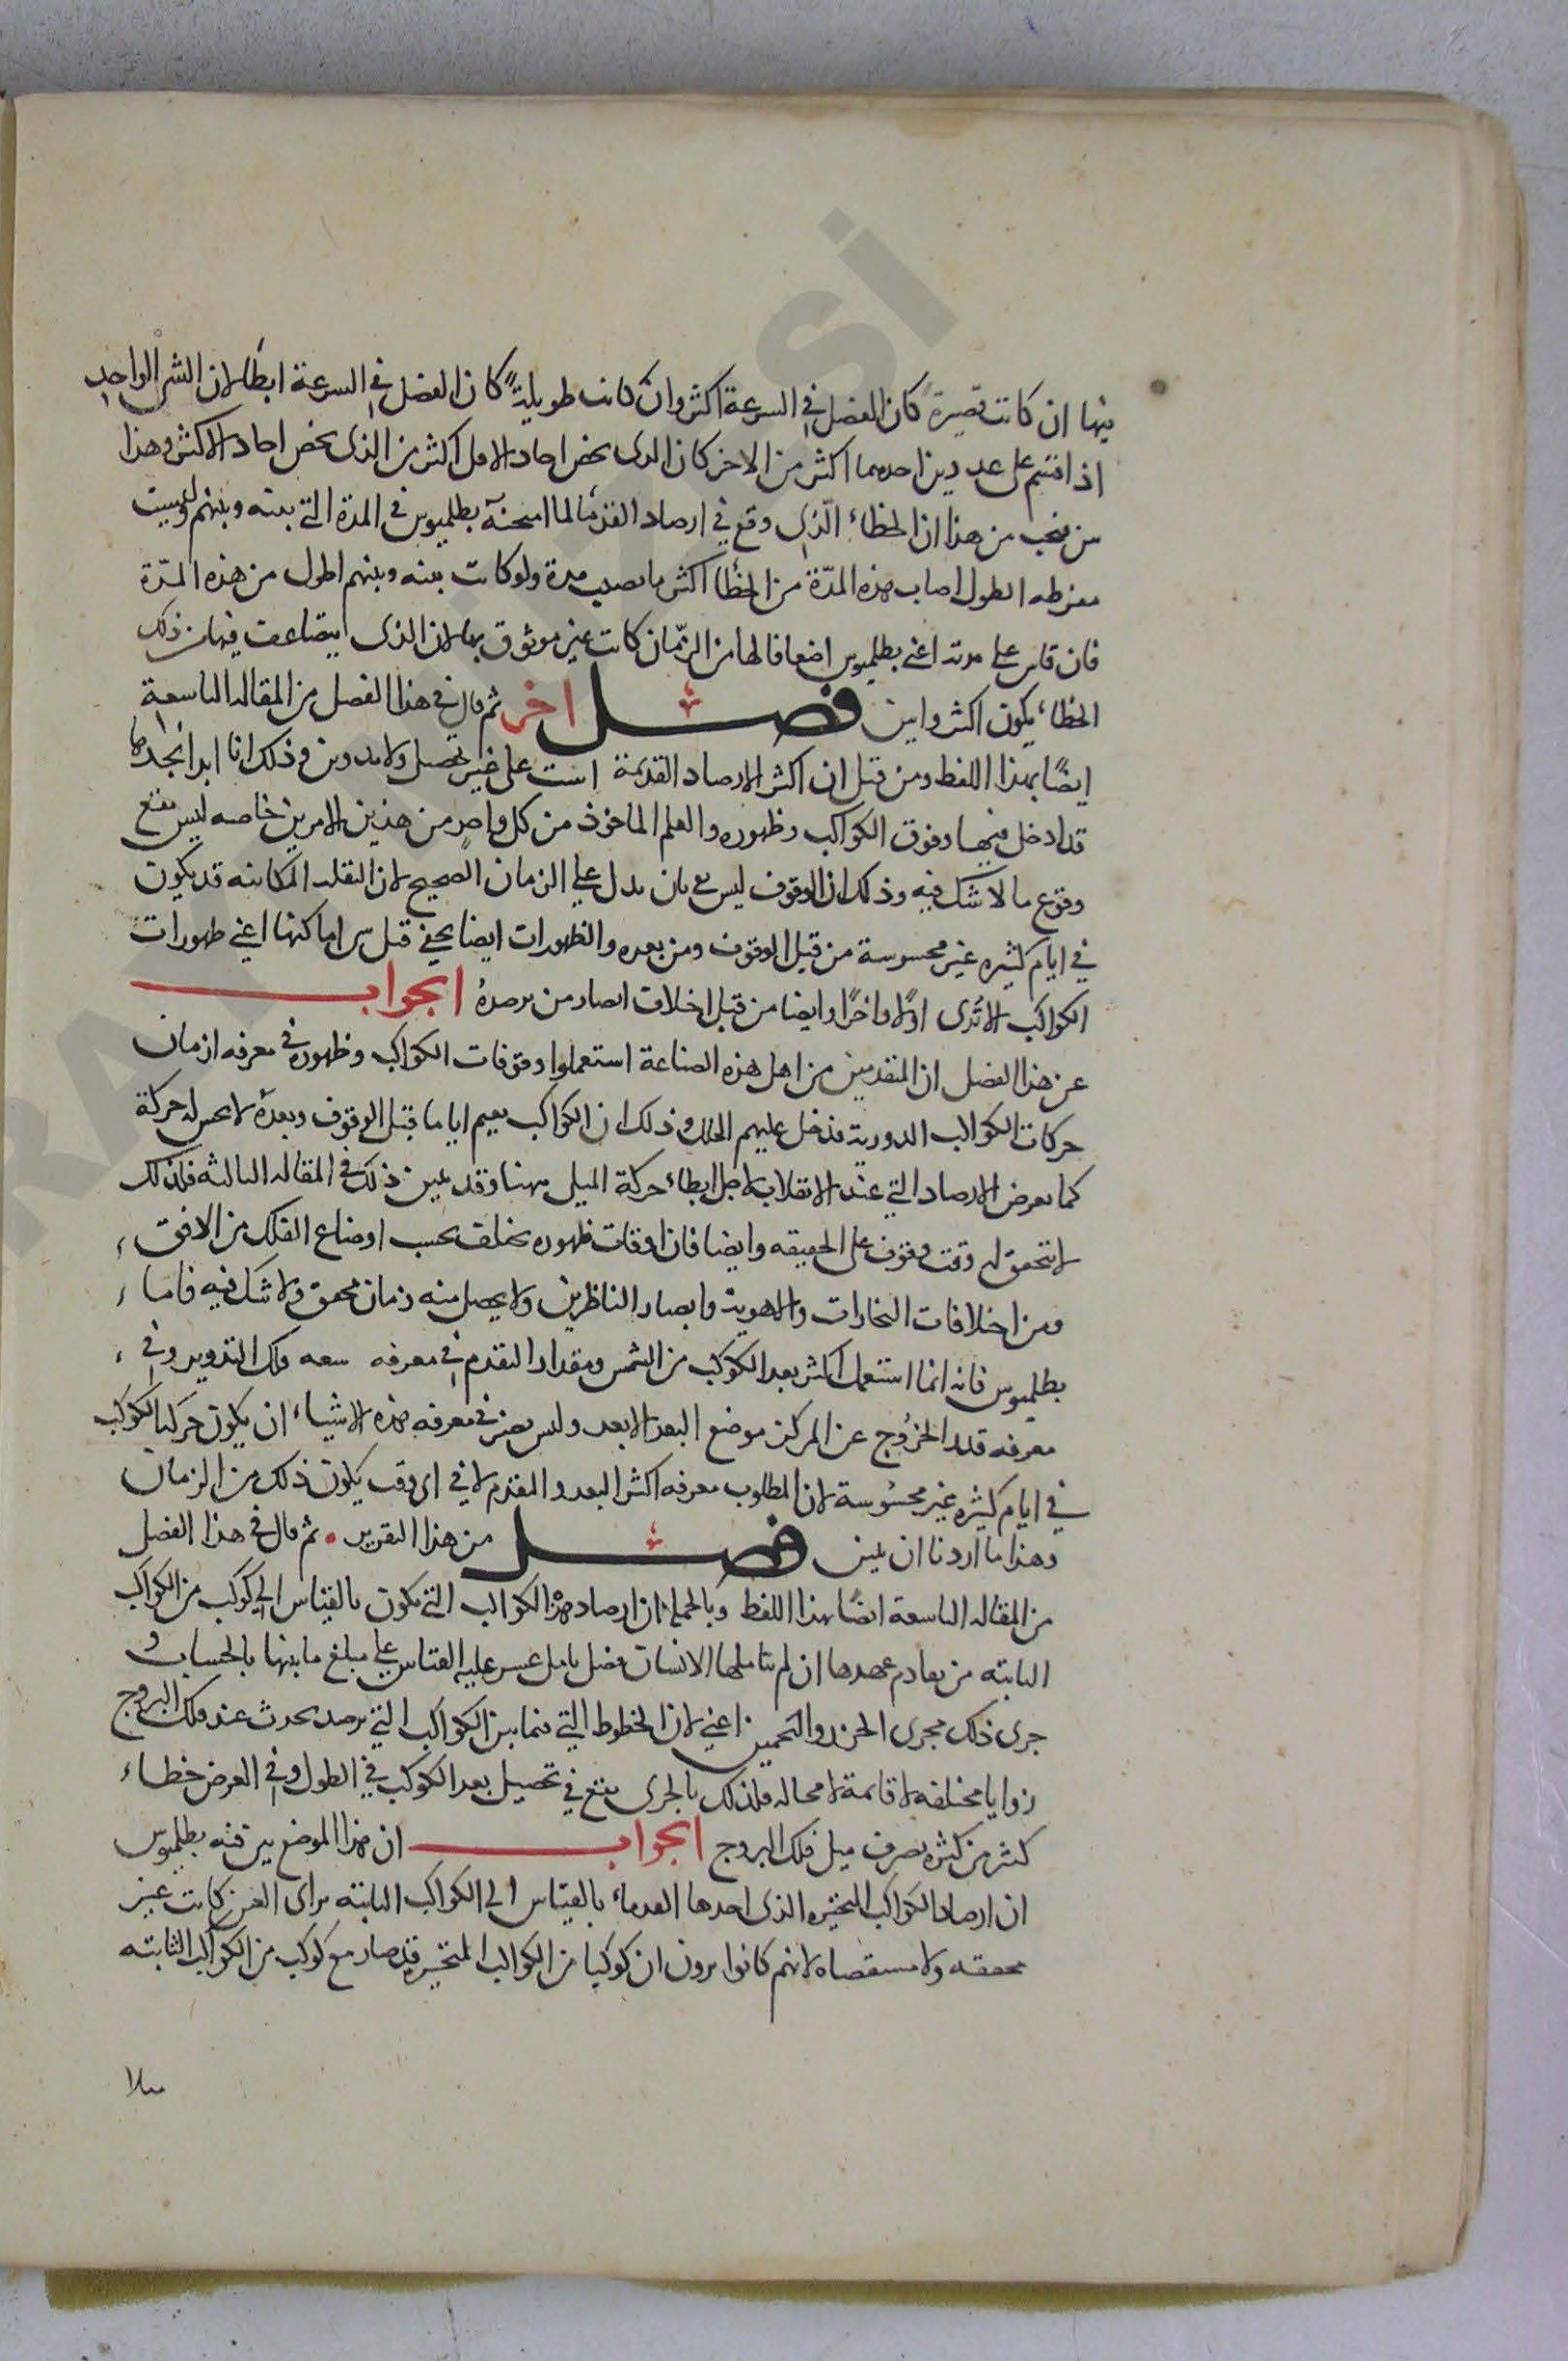 فيها ان كانت قصيرة كان الفضل في السرعة اكثر وان كانت طويلة كان الفضل في السرعة ابطا لان الشي الواحد
اذا قسم على عددين احدهما اكثر من الاخر كان الذى يخص احاد الاقل اكثر من الذى يخص احاد الاكثر وهذا
من هذا ان الخطاء الذى وقع في ارصاد القدما لما امتحنه بطلميوس في المدة التي بينه وبينهم وليست
مفرطه الطول اصاب هذه المدّة من الخطأ اكثر ما يصيب مدة ولو كانت بينه وبينهم اطول من هذه المدّة
فان قاس على مدته اعني بطلميوس اضعافا لها من الزمان كانت غير موثوق بها لان الذى يتضاعف فيها من ذلك
الخطاء يكون اكثر وابين فصل اخر ثم قال في هذا الفصل من المقاله التاسعة
ايضًا بهذا اللفظ ومن قبل ان اكثر الارصاد القديمة اثبت على غير تحصيل ولا تدوين وذلك انا ابدا نجدها
قد ادخل فيها وقوف الكواكب وظهوره والعلم الماخوذ من كل واحد من هذين الامرين خاصه ليس يقع
وقوع ما لا شك فيه وذلك ان الوقوف ليس يدل على الزمان الصحيح لان النقلة المكانيه قد يكون
في ايام كثيره غير محسوسة من قبل الوقوف ومن بعده والظهورات ايضا قبل اماكنها اعني ظهورات
الكواكب لا ترى اولا واخرًا وايضا من قبل اختلاف ابصار من يرصده الجواب
عن هذا الفصل ان المتقدمين من اهل هذه الصناعة استعملوا وقوفات الكواكب وظهوره في معرفه ازمان
حركات الكواكب الدورية فدخل عليهم الخلل وذلك ان الكواكب يقيم اياما قبل الوقوف وبعدهُ لا يحس له حركة
كما يعرض الارصاد التي عند الانقلاب لاجل ابطاء حركة الميل هنا وقد بين ذلك في المقاله الثالثه فلذلك
لا يتحقق له وقت وقوف على الحقيقه وايضا فان اوقات ظهوره يختلف بحسب اوضاع الفلك من الافق
ومن اختلافات البخارات والاهوية وابصار الناظرين ولا يحصل منه زمان محقق ولا شك فيه فاما
بطلميوس فانه انما استعمل اكثر بعد الكوكب من الشمس ومقدار التقدم في معرفه سعه فلك التدوير وفي
معرفه قدر الخرُوج عن المركز موضع البعد الابعد وليس يضر في معرفه هذه الاشياء ان يكون حركة الكوكب
في ايام كثيره غير محسُوسة لان المطلوب معرفه اكثر البعد والتقدم لا في اى وقت يكون ذلك من الزمان
وهذا ما اردنا ان نبين فصل من هذا التقرير ثم قال في هذا الفصل
من المقاله التاسعة ايضًا بهذا اللفظ وبالجملة ان ارصاد هذه الكواكب التي تكون بالقياس الى كوكب من الكواكب
الثابته من تقادم عهدها ان لم يتاملها الانسان فضل تامل عسر عليه القياس على مبلغ ما بينها بالحساب و
جرى ذلك مجرى الحزر والتخمين اعني لان الخطوط التي فيما بين الكواكب التي يرصد يحدث عند فلك البروج
زوايا مختلفه لا قائمة لا محاله فلذلك بالحرى يقع في تحصيل بعد الكوكب في الطول وفي العرض خطاء
كثير من كثره تصرف ميل فلك البروج الجواب ان هذا الموضع بين فيه بطلميوس
ان ارصاد الكواكب المتحيره الذى اخذها القدماء بالقياس الى الكواكب الثابته براى العين كانت غير
محققه ولا مستقصاه لانهم كانوا يرون ان كوكبا من الكواكب المتحيره قد صار مع كوكب من الكواكب الثابته
مثلا